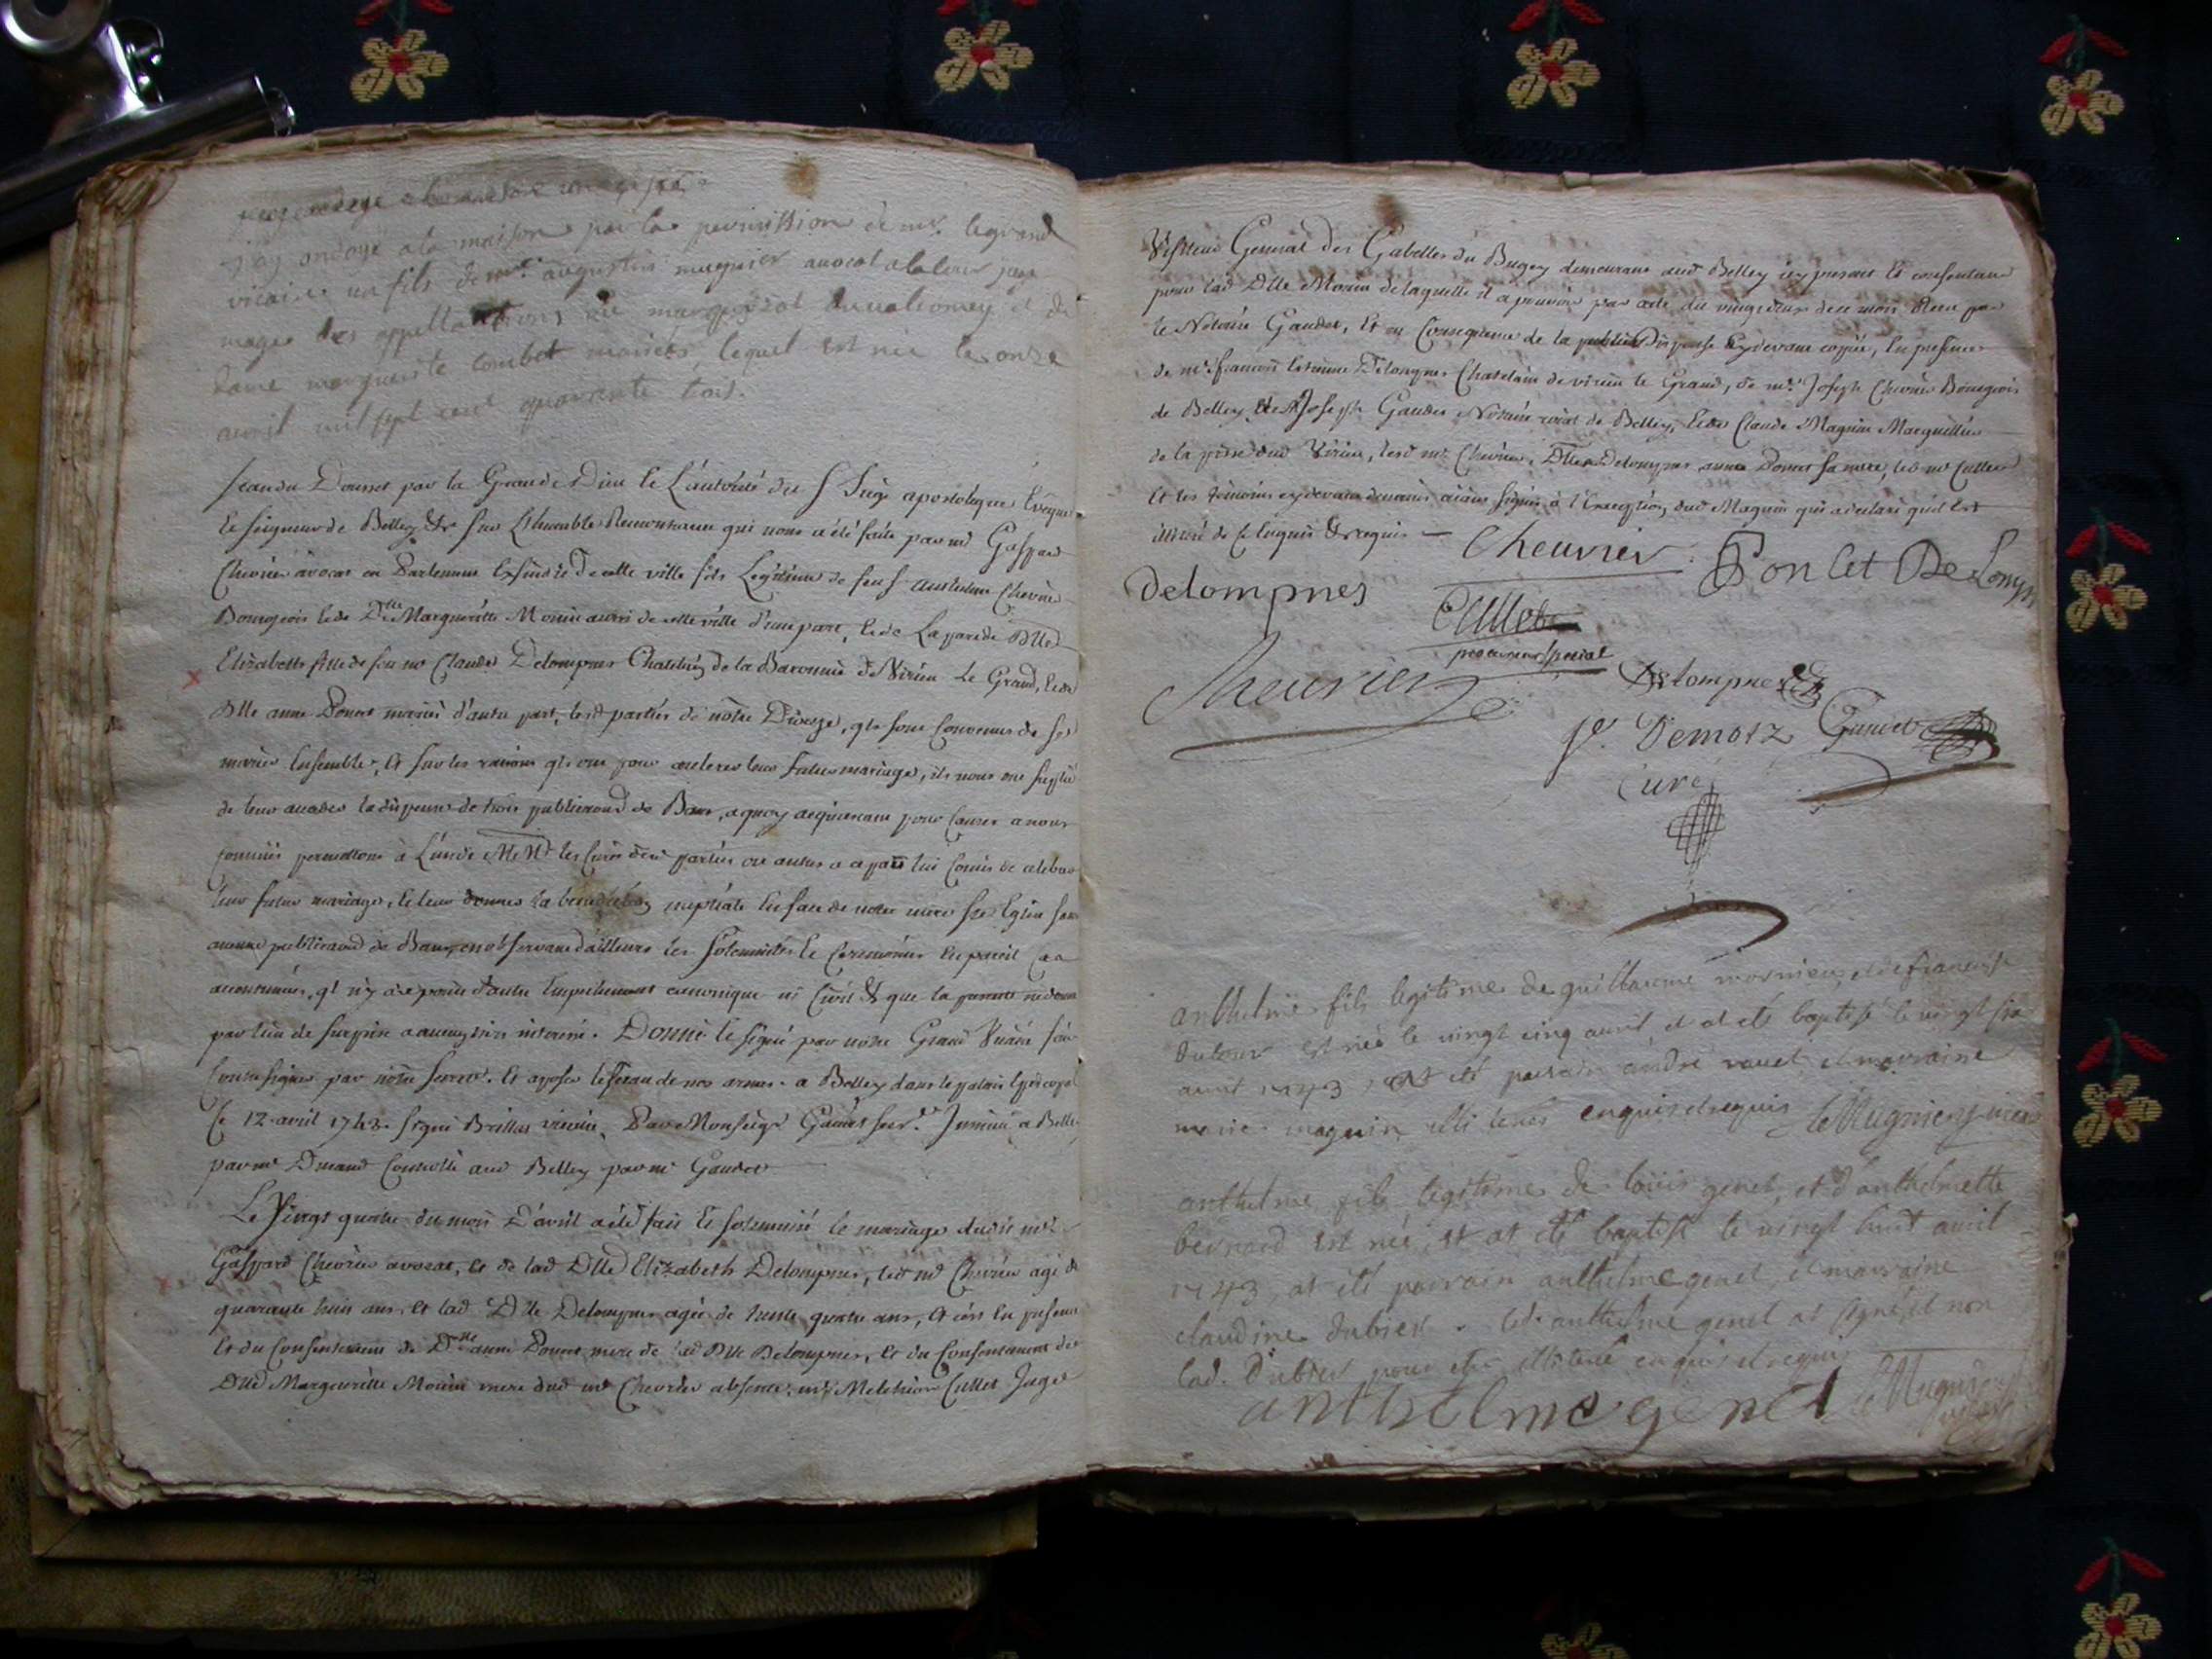 j'ay ondoyé a la maison par la permission de mr. legrand
vicaire un fils de mre. augustin mugnier avocat a la cour juge
mage des appellations du marquisat du valromey et de
dame marguerite combet mariés lequel est née le onze
avril mil sept cent quarante trois.
Jean du Dousset par la Grace de Dieu et L'autorité du S Siege apostolique Eveque
et seigneur de Belley &c sur L'humble Remontrance qui nous a été faite par mr Gaspard
Chevrier avocat en Parlement de cette ville fils Legitime de feu S anthelme Chevrier
Bourgeois et de Dlle Margueritte Monin aussi de cette ville d'une part, et de La part de Dlle
Elizabeth fille de feu mr Claude Delompnes Chatelain de la Baronnie de Virieu Le Grand, et de
Dlle anne Poncet mariés d'autre part, lesd parties de notre Diocese, qls sont convenus de se
marier Ensemble, et sur les raisons qls ont pour accelerer leur futur mariage, ils nous ont supplié
de leur accorder la dispense de trois publicaons de Bans, a quoy acquiescant pour causes a nous
connües permettons à L'un de MM les Curés desd parties ou autre a ce par lui Comis de celebrer
leur futur mariage, et leur donner la benediction nuptiale En face de notre mere Ste Eglise sans
aucune publicaon de Bans, en observant d'ailleurs les Solemnités et Ceremonies En pareil cas
accoutumées, ql n'y aie point d'autre Empechement canonique ni Civil & que la presente ne donne
pas lieu de surprise a aucun tiers interessé. Donné et signé par notre Grand Vicaire
Contresigné par notre Secre. Et apposer le Sceau de nos armes. a Belley dans le palais Episcopal
Ce 12 avril 1743. Signé Brillat vicaire, Par Monseigr Gaudet secr. Insinué a Belley
par mr Dinand Controllé aud Belley par mr Gaudet
Le Vingt quatre du mois D'avril a été fait et solemnisé le mariage dudit mr
Gaspard Chevrier avocat, et de lad Dlle Elizabeth Delompnes, led mr Chevrier agé de
quarante huit ans, et lad Dlle Delompnes agée de trente quatre ans, et ces En presence
Et du Consentement de Dlle anne Poncet mere de lad Dlle Delompnes, et du Consentement de
Dlle Margueritte Monin mere dud mr Chevrier absente, mr Melchior Cullet Juge
Visiteur General des Gabelles du Bugey demeurant aud Belley icy present et consentant
pour lad Dlle Monin de laquelle il a pouvoir par acte du vingt deux de ce mois Receu par
le Notaire Gaudet, Et en Consequence de la Dispense cy devant copiée, En presence
de mr francois Delompnes Chatelain de virieu le Grand, de mr Joseph Chevrier Bourgeois
de Belley, de mr Joseph Gaudet Notaire roial de Belley, et de Claude Magnin Marguillier
de la psse dud Virieu, lesd mr Chevrier, Dlle Delompnes, anne Poncet sa mere, led mr Cullet
Et les temoins cy devant denomés aiant signés à l'Exception dud Magnin qui a declaré qu'il est
illitéré de ce Enquis & requis - Cheuvrier. Poncet De Lompn
Delompnes
Cullet
procureur special
Cheuvrier Delompnes
Je. Demotz Gaudet
Curé
anthelme fils legitime de guillaume mornieux, et de francoise
dutour est née le vingt cinq avril et at eté baptisé le vingt six
avril 1743, at eté parrain andré ravet, et marraine
marie magnin illiterés enquis et requis LeMugnier vicaire
anthelme fils legitime de louis genet, et d'anthelmette
bernard est née, et at eté baptisé le vingt huit avril
1743, at eté parrain anthelme genet, et marraine
claudine dubiet. led. anthelme genet at signé, et non
lad. Dubiet pour etre illiteré enquis et requis
anthelme genet LeMugnier
vicaire